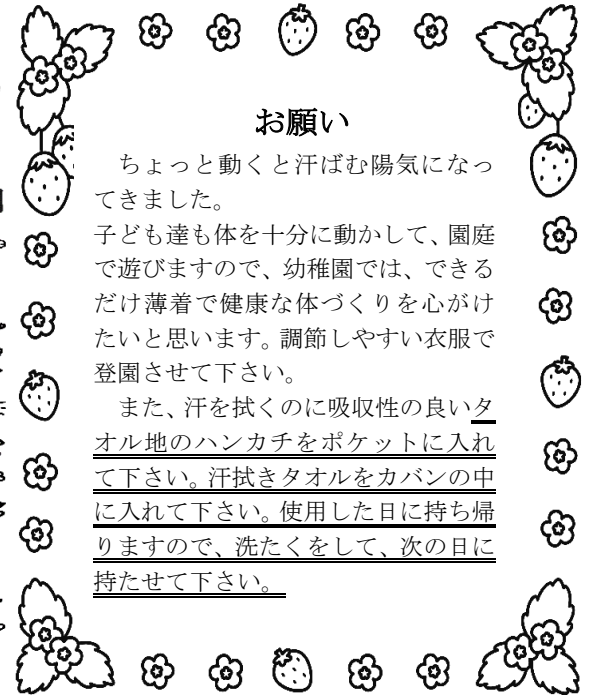 お願い
ちょっと動くと汗ばむ陽気になっ
てきました。
子ども達も体を十分に動かして、園庭
で遊びますので、幼稚園では、できる
だけ薄着で健康な体づくりを心がけ
たいと思います。調節しやすい衣服で
登園させて下さい。
また、汗を拭くのに吸収性の良いタ
オル地のハンカチをポケットに入れ
て下さい。汗拭きタオルをカバンの中
に入れて下さい。使用した日に持ち帰
りますので、洗たくをして、次の日に
持たせて下さい。